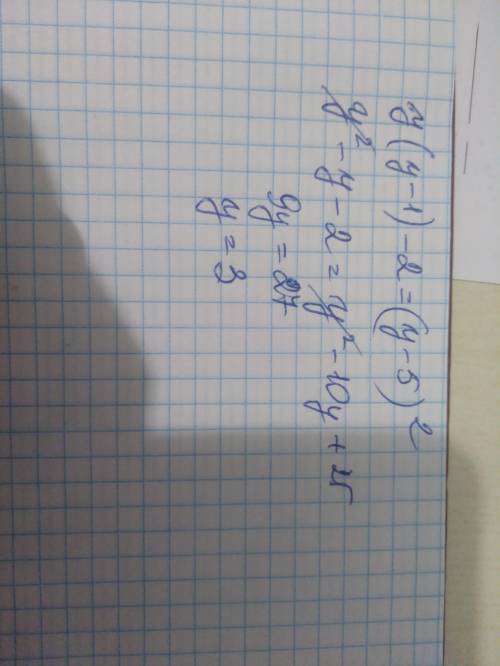 y(y-1)-2=(y-5)²
y²-y-2=y²-10y+25
9y=27
y=3